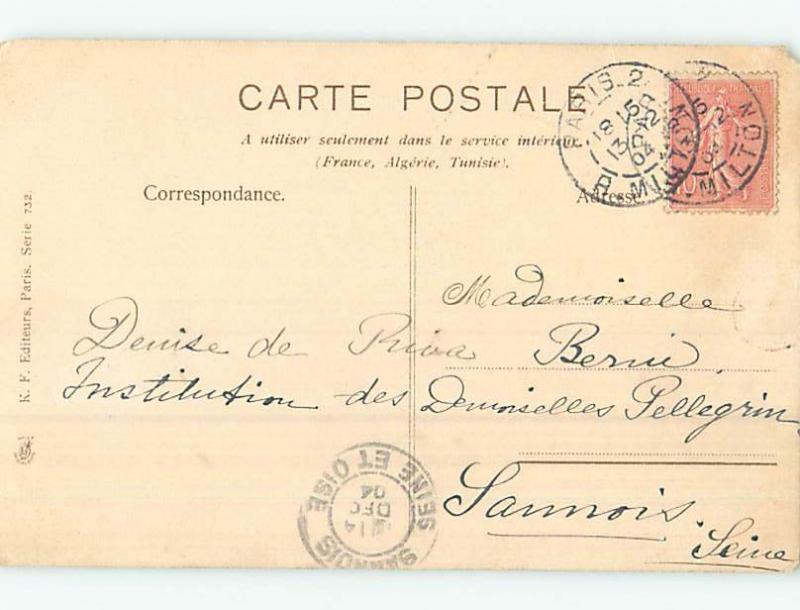 CARTE POSTALE
A utiliser seulement dans le service intérieur.
(France, Algérie, Tunisie).
Correspondance.
Adresse
K. F. Editeurs, Paris. Serie 732.
PARIS 2
R. MILTON
18 15
13 2
04
R. MILTON
Mademoiselle
Denise de Riva Berni
Institution des Demoiselles Pellegrin
Sannois
Seine
SANNOIS
SEINE ET OISE
14
DEC
04